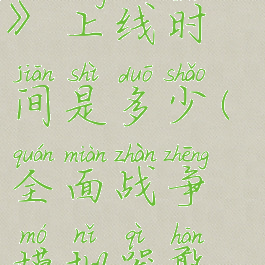 》上线时
jiān shì duō shǎo
间是多少(
quán miàn zhàn zhēng
全面战争
mó nǐ qì hān
模拟器